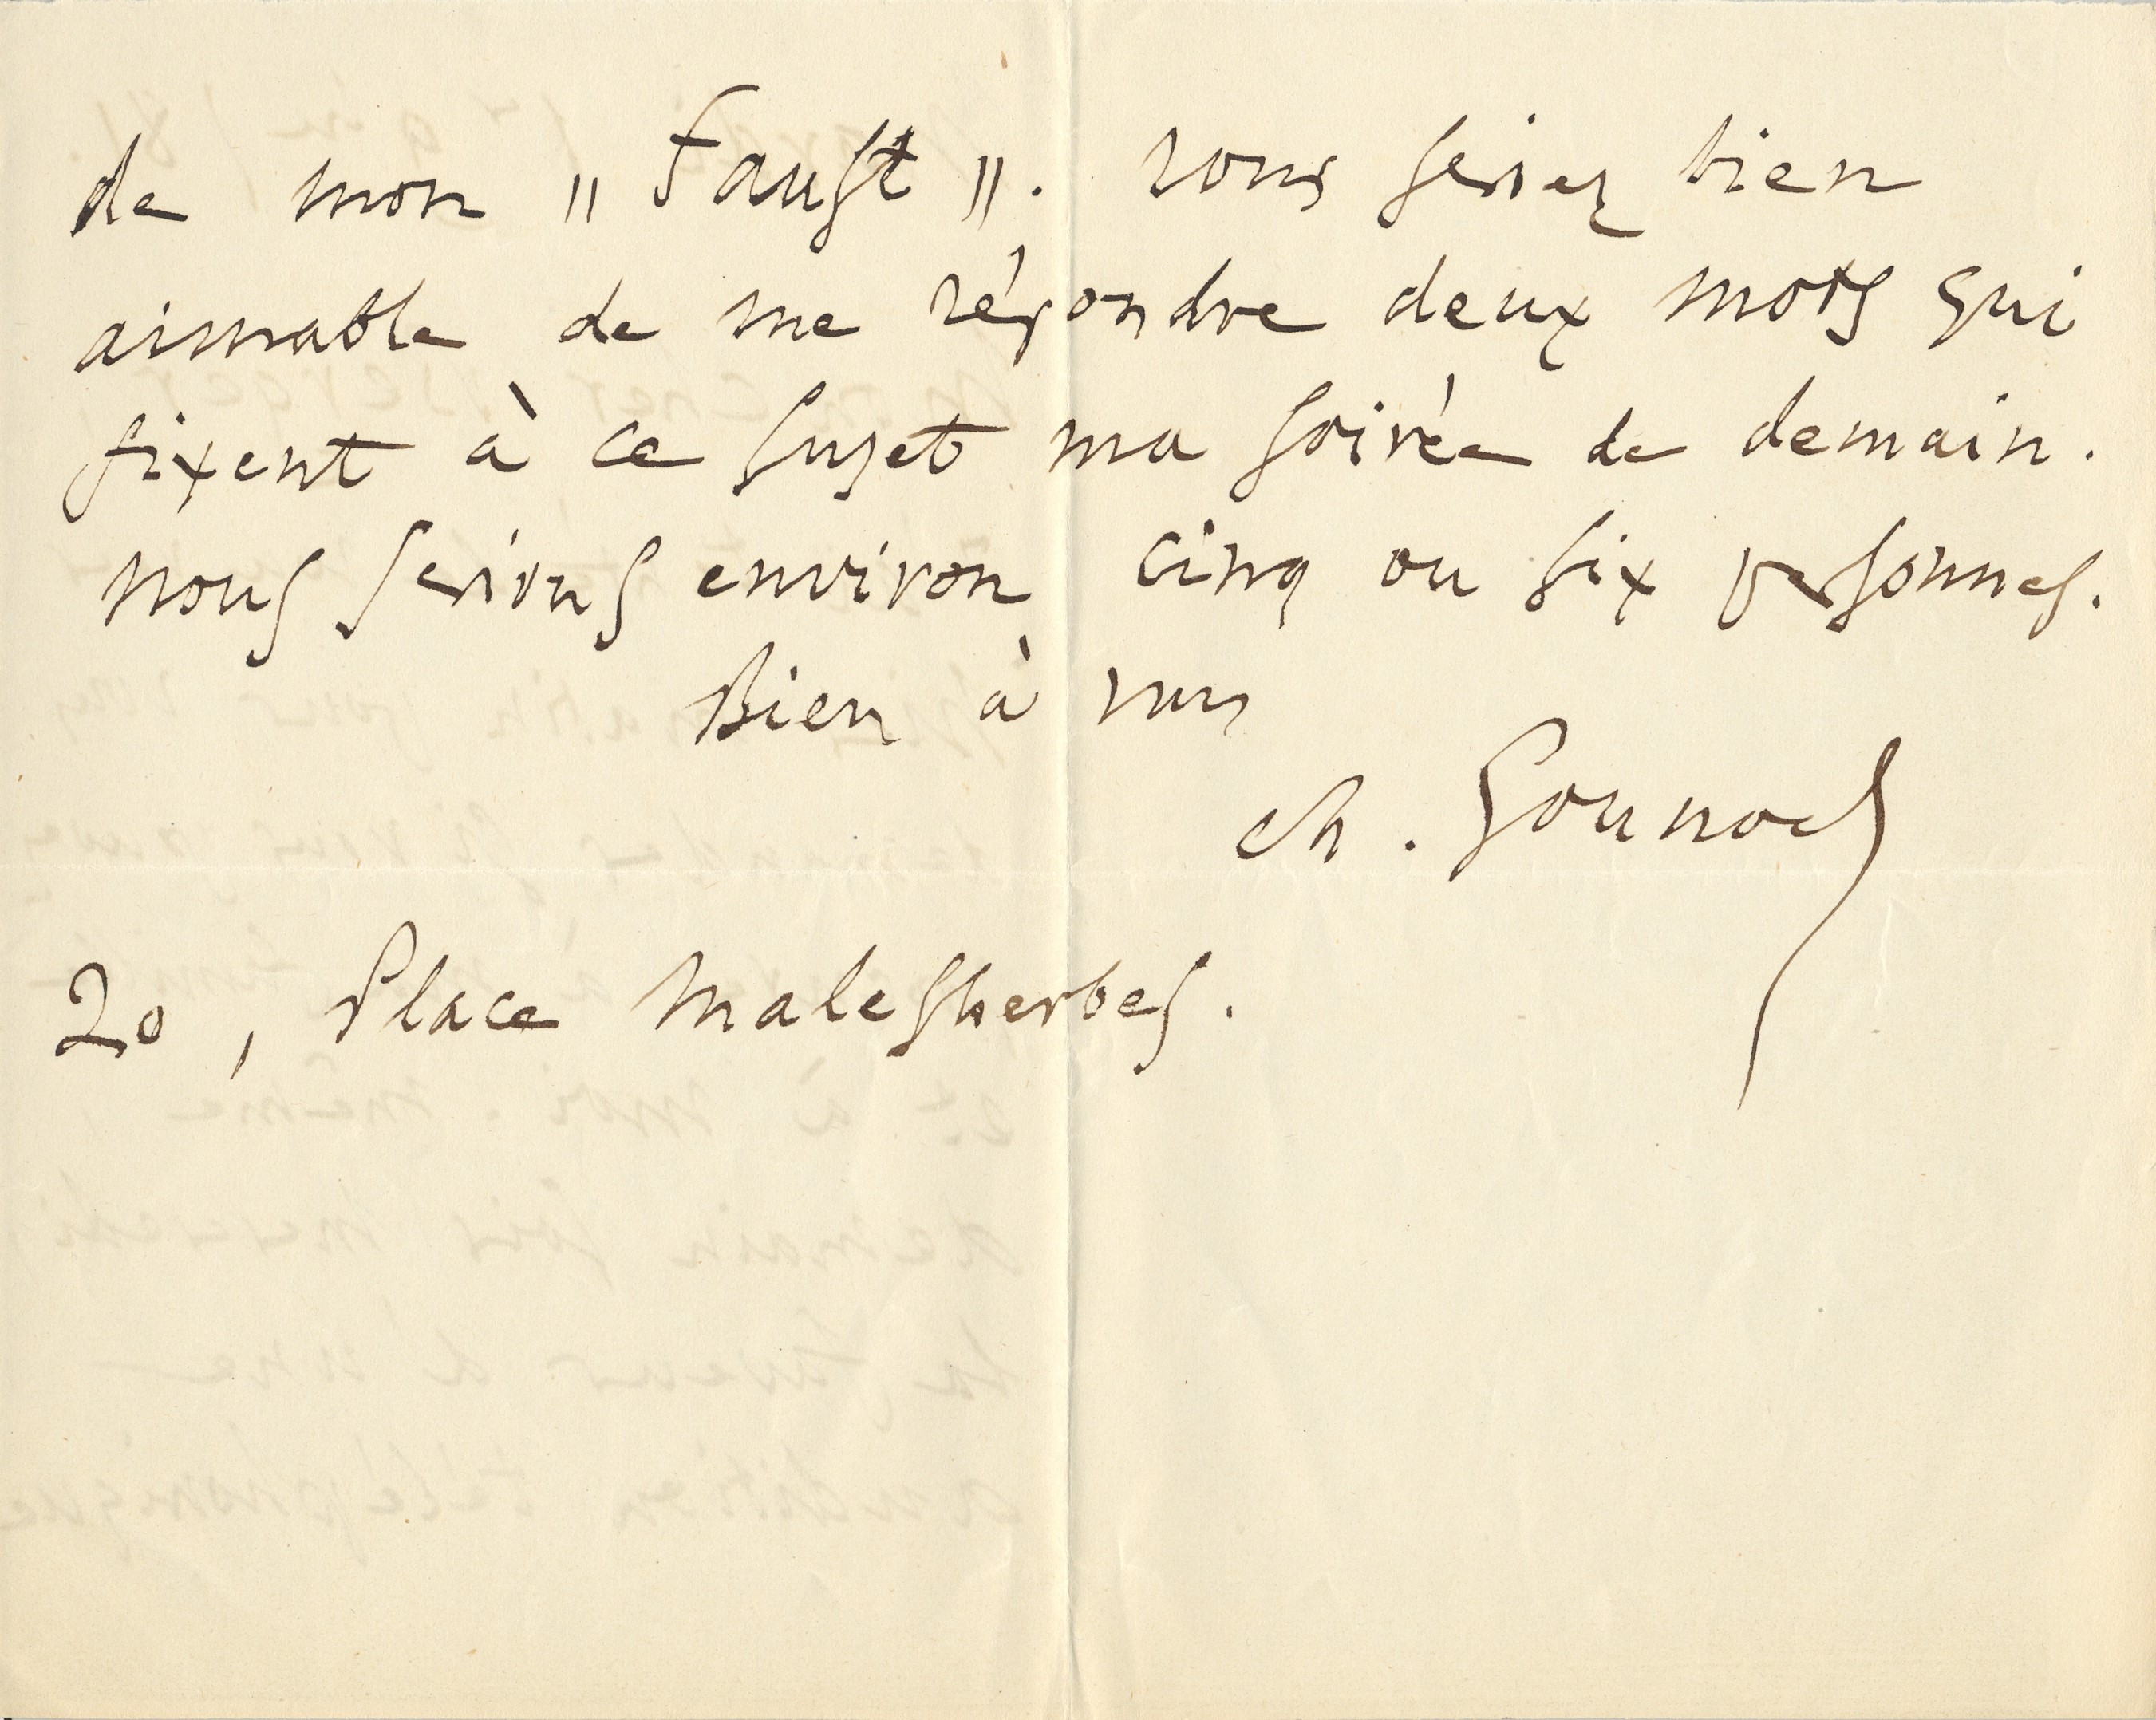 de mon " Faust ". vous seriez bien
aimable de me répondre deux mots qui
fixent à ce sujet ma soirée de demain.
nous serions environ cinq ou six personnes.
Bien à vous
Ch. Gounod
20, Place Malesherbes.